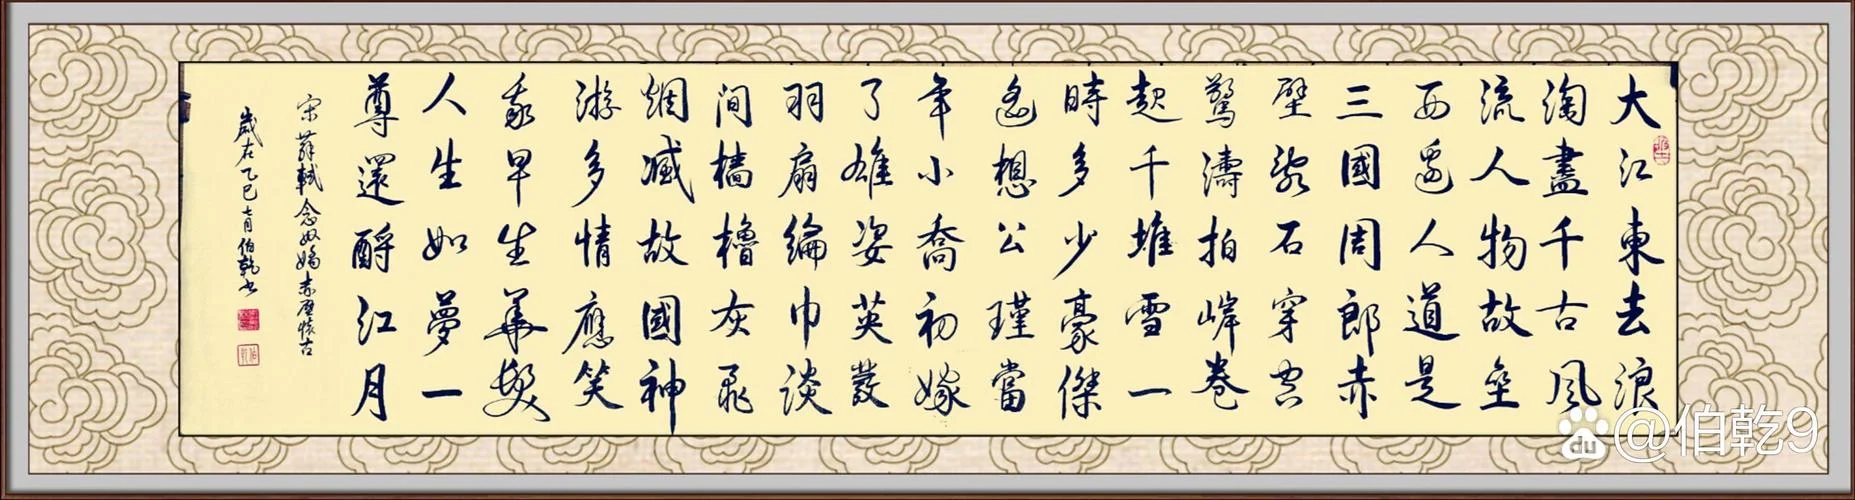 大江東去浪
淘盡千古風
流人物故垒
西邊人道是
三國周郎赤
壁亂石穿空
驚濤拍岸卷
起千堆雪一
時多少豪傑
遙想公瑾當
年小喬初嫁
了雄姿英發
羽扇綸巾談
間檣櫓灰飛
烟滅故國神
游多情應笑
我早生華髮
人生如夢一
尊還酹江月
宋蘇軾念奴嬌赤壁懷古
歲在乙巳七月伯乾書
du @伯乾9